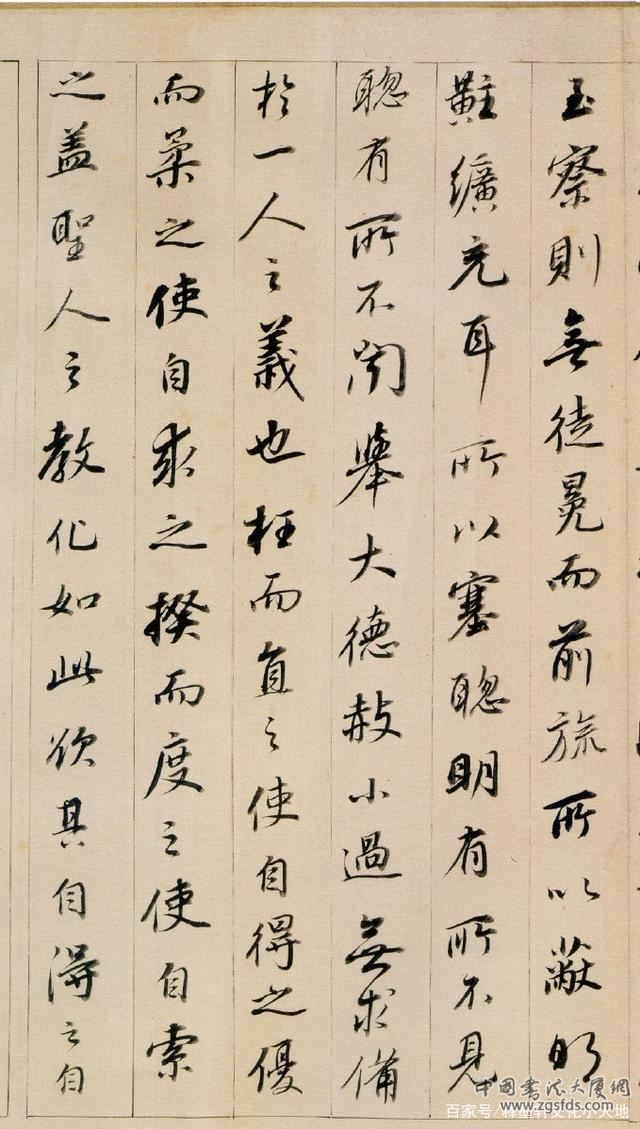 至察則無徒冕而前旒所以蔽明
黈纊充耳所以塞聰明有所不見
聰有所不聞舉大德赦小過無求備
於一人之義也枉而直之使自得之優
而柔之使自求之揆而度之使自索
之盖聖人之教化如此欲其自得之自
中國書法大厦網
www.zgsfds.com
百家号/